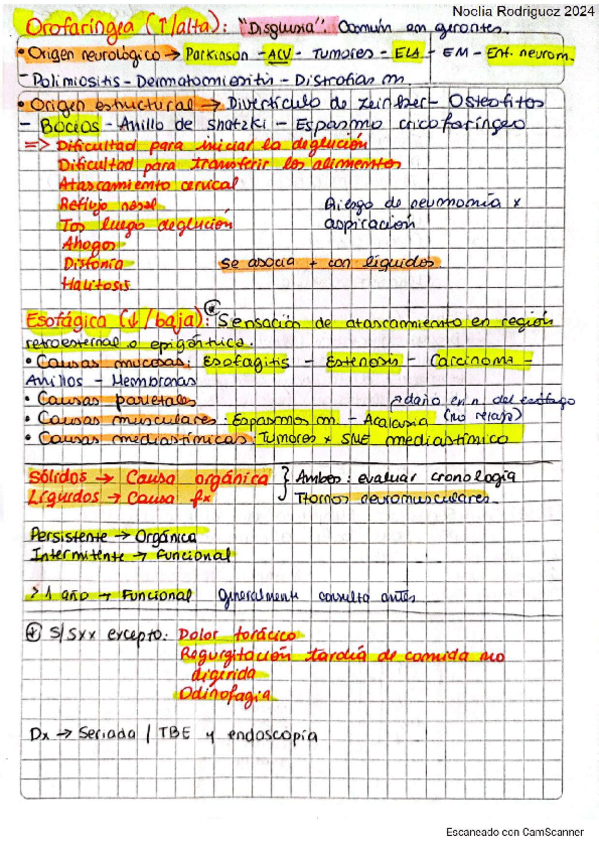 Noelia Rodriguez 2024
Orofaríngea (↑/alta): "Disglusia". Común em gerontes.
• Origen neurológico → Parkinson - ACV - Tumores - ELA - EM - Enf. neurom.
- Polimiositis - Dermatomiositis - Distrofias m.
• Origen estructural → Divertículo de Zencker - Osteofitos
- Bocios - Anillo de Shatzki - Espasmo cricofaríngeo
=> Dificultad para iniciar la deglución
Dificultad para transferir los alimentos
Atascamiento cervical
Reflujo nasal Riesgo de neumonía x
Tos luego deglución aspiración
Ahogos
Disfonía se asocia + con líquidos.
Halitosis
Esofágica (↓/baja): Sensación de atascamiento en región
retroesternal o epigástrica.
• Causas mucosas: Esofagitis - Estenosis - Carcinoma -
Anillos - Membranas
• Causas parietales → daño en n del esófago
• Causas musculares: Espasmos m. - Acalasia (no relaja)
• Causas mediastínicas: Tumores x SNE mediastínico
Sólidos → Causa orgánica } Ambos: evaluar cronología
Líquidos → Causa fx Ttornos neuromusculares.
Persistente → Orgánica
Intermitente → Funcional
> 1 año → Funcional Generalmente consulta antes
S/Sxx excepto: Dolor torácico
Regurgitación tardía de comida no
digerida
Odinofagia
Dx → Seriada / TBE y endoscopía
Escaneado con CamScanner